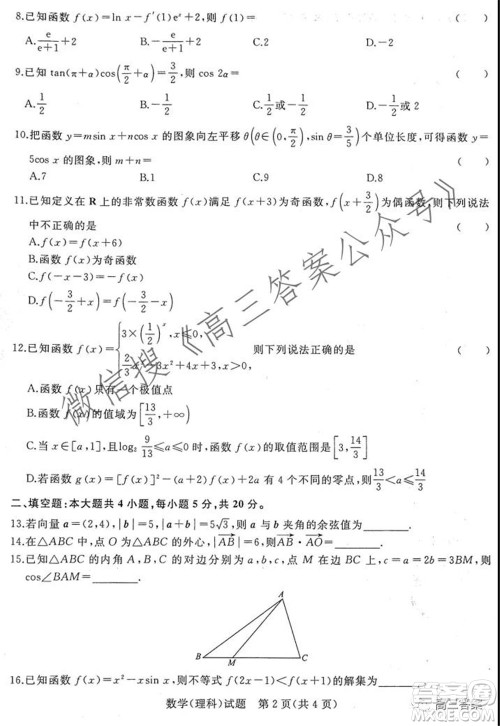 8.已知函数 f(x)=ln x-f′(1)eˣ+2,则 f(1)= ( )
A. e/(e+1)+2 B.-e/(e+1)+2 C.2 D.-2
9.已知 tan(π+α)cos(π/2+α)=3/2,则 cos 2α= ( )
A. 1/2 B.-1/2 C. 1/2或-1/2 D. √3/2
10.把函数 y=msin x+ncos x 的图象向左平移 θ(θ∈(0,π/2),sin θ=3/5)个单位长度,可得函数 y=
5cos x 的图象,则 m+n= ( )
A.7 B.1 C.9 D.8
11.已知定义在 R 上的非常数函数 f(x)满足 f(x+3)为奇函数,f(x+3/2)为偶函数,则下列说法
中不正确的是 ( )
A.f(x)=f(x+6)
B.函数 f(x)为奇函数
C.f(-x-3)=-f(x)
D.f(-3/2)=f(-9/2)
12.已知函数 f(x)={3×(1/2)ˣ,x≤0, x³-3x²+4x+3,x>0, 则下列说法正确的是 ( )
A.函数 f(x)只有一个极值点
B.函数 f(x)的值域为[13/3,+∞)
C.当 x∈[a,1],且log₂ 9/13≤a≤0时,函数 f(x)的取值范围是[3,14/3]
D.若函数 g(x)=[f(x)]²-(a+2)f(x)+2a 有 4 个不同的零点,则 13/3≤a≤14/3
二、填空题:本大题共 4 小题,每小题 5 分,共 20 分。
13.若向量 a=(2,4),|b|=5,|a+b|=5√3,则 a 与 b 夹角的余弦值为
14.在△ABC 中,点 O 为△ABC 的外心,|AB|=6,则AB·AO=
15.已知△ABC 的内角 A,B,C 的对边分别为 a,b,c,点 M 在边 BC 上,c=a=2b=3BM,则
cos∠BAM=
A
B M C
16.已知函数 f(x)=x²-xsin x,则不等式 f(2x-1)<f(x+1)的解集为
数学(理科)试题 第 2 页(共 4 页)
微信搜《高三答案公众号》
高三答案